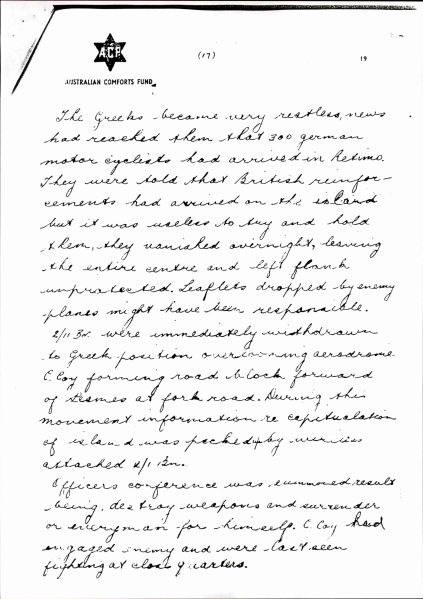 A.C.F.
(17)
19
AUSTRALIAN COMFORTS FUND
The Greeks became very restless, news
had reached them that 300 german
motor cyclists had arrived in Retimo.
They were told that British reinfor-
cements had arrived on the island
but it was useless to try and hold
them, they vanished overnight, leaving
the entire centre and left flank
unprotected. Leaflets dropped by enemy
planes might have been responsible.
2/11 Bn. were immediately withdrawn
to Greek position overlooking aerodrome
C. Coy forming road block forward
of at fork road. During this
movement information re capitualation
of island was picked up by wireless
attached 2/1 Bn.
Officers conference was summoned result
being, destroy weapons and surrender
or everyman for himself. C. Coy had
engaged enemy and were last seen
fighting at close quarters.